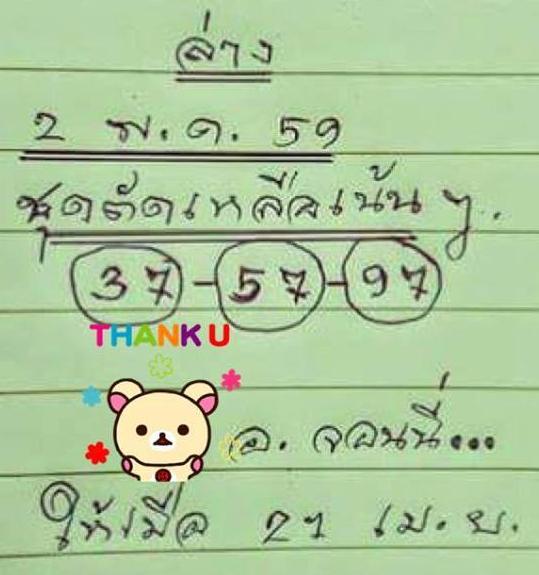 ล่าง
2 พ.ค. 59
ชุดตัดเหลือเน้น ๆ.
37 - 57 - 97
THANK U
อ. จอนนี่...
ให้เมื่อ 21 เม.ย.